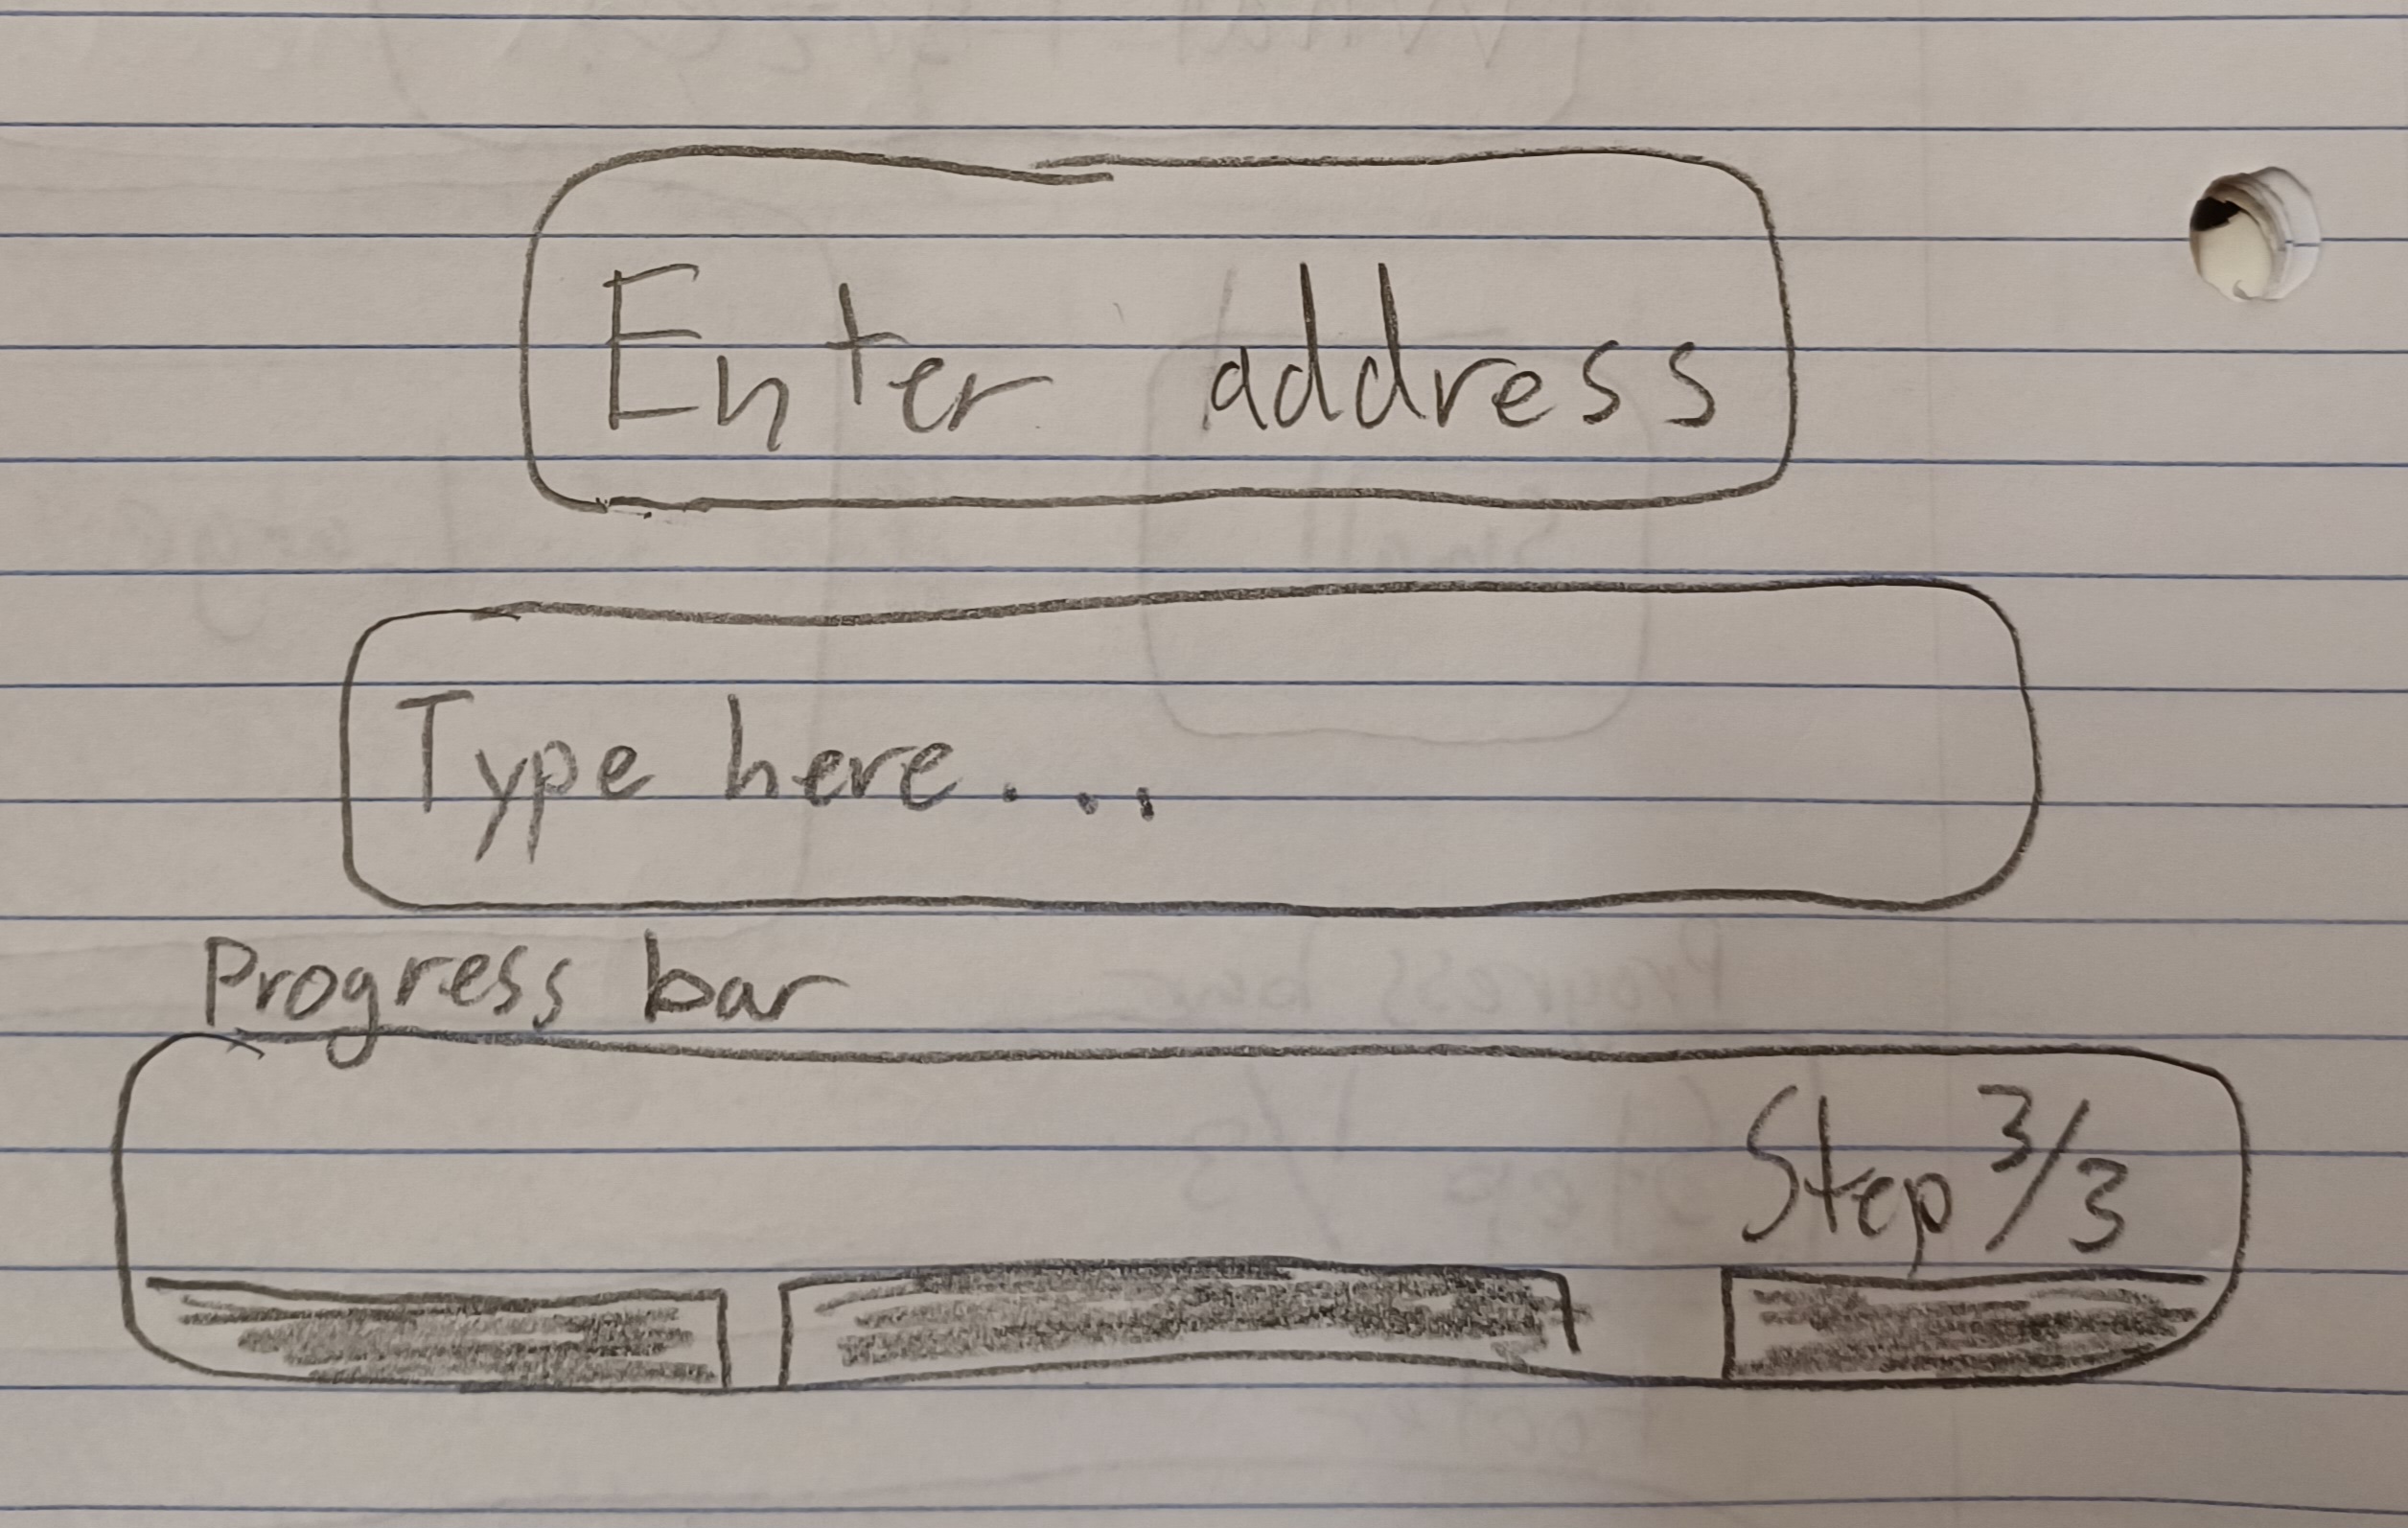 Enter address
Type here....
Progress bar
Step 3/3